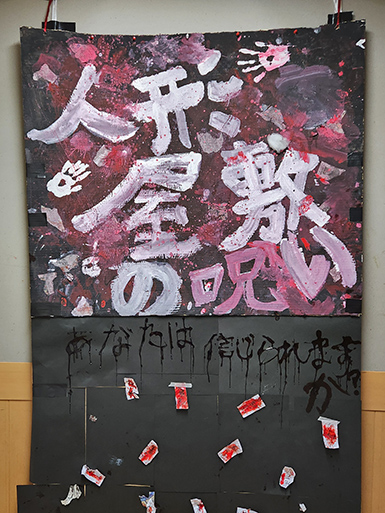 人形
屋敷
の呪い
あなたは信じられます
か?